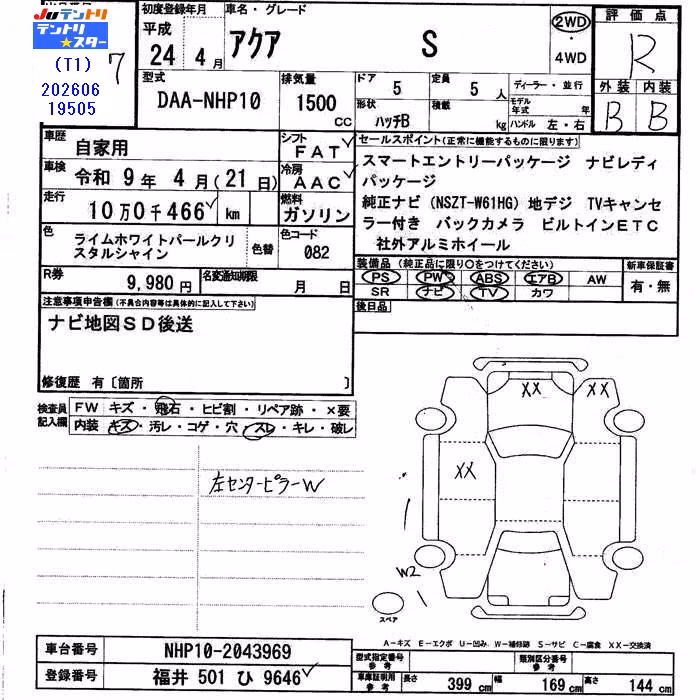 JUテントリ
テントリ★スター
(T1)
202606
19505
7
初度登録年月
平成
24 4月
車名・グレード
アクア S
2WD
4WD
評価点
R
外装 内装
B B
型式
DAA-NHP10
排気量
1500
CC
ドア
5
定員
5 人
形状
ハッチB
積載
kg
ディーラー・並行
モデル年式 年
ハンドル 左・右
車歴
自家用
シフト
FAT
車検
令和 9年 4月(21日)
冷房
AAC
走行
10万0千466 km
燃料
ガソリン
色
ライムホワイトパールクリスタルシャイン
色替
色コード
082
R券
9,980円
名変通知期限
月 日
セールスポイント(正常に機能するものに限ります)
スマートエントリーパッケージ ナビレディ
パッケージ
純正ナビ(NSZT-W61HG)地デジ TVキャンセ
ラー付き バックカメラ ビルトインETC
社外アルミホイール
装備品(純正品に限り○をつけてください)
PS PW ABS エアB AW
SR ナビ TV カワ
新車保証書
有・無
後日品
注意事項申告欄(不具合内容等は具体的に記入して下さい)
ナビ地図SD後送
修復歴 有〔箇所 〕
検査員記入欄
FW キズ・飛石・ヒビ割・リペア跡・×要
内装 キズ・汚レ・コゲ・穴・スレ・キレ・破レ
左センターピラーW
XX
XX
XX
W2
スペア
A-キズ E-エクボ U-凹み W-補修跡 S-サビ C-腐食 XX-交換済
車台番号
NHP10-2043969
登録番号
福井 501 ひ 9646
型式指定番号
参考
類別区分番号
参考
車庫証明用
参考
長さ 399cm
幅 169cm
高さ 144cm